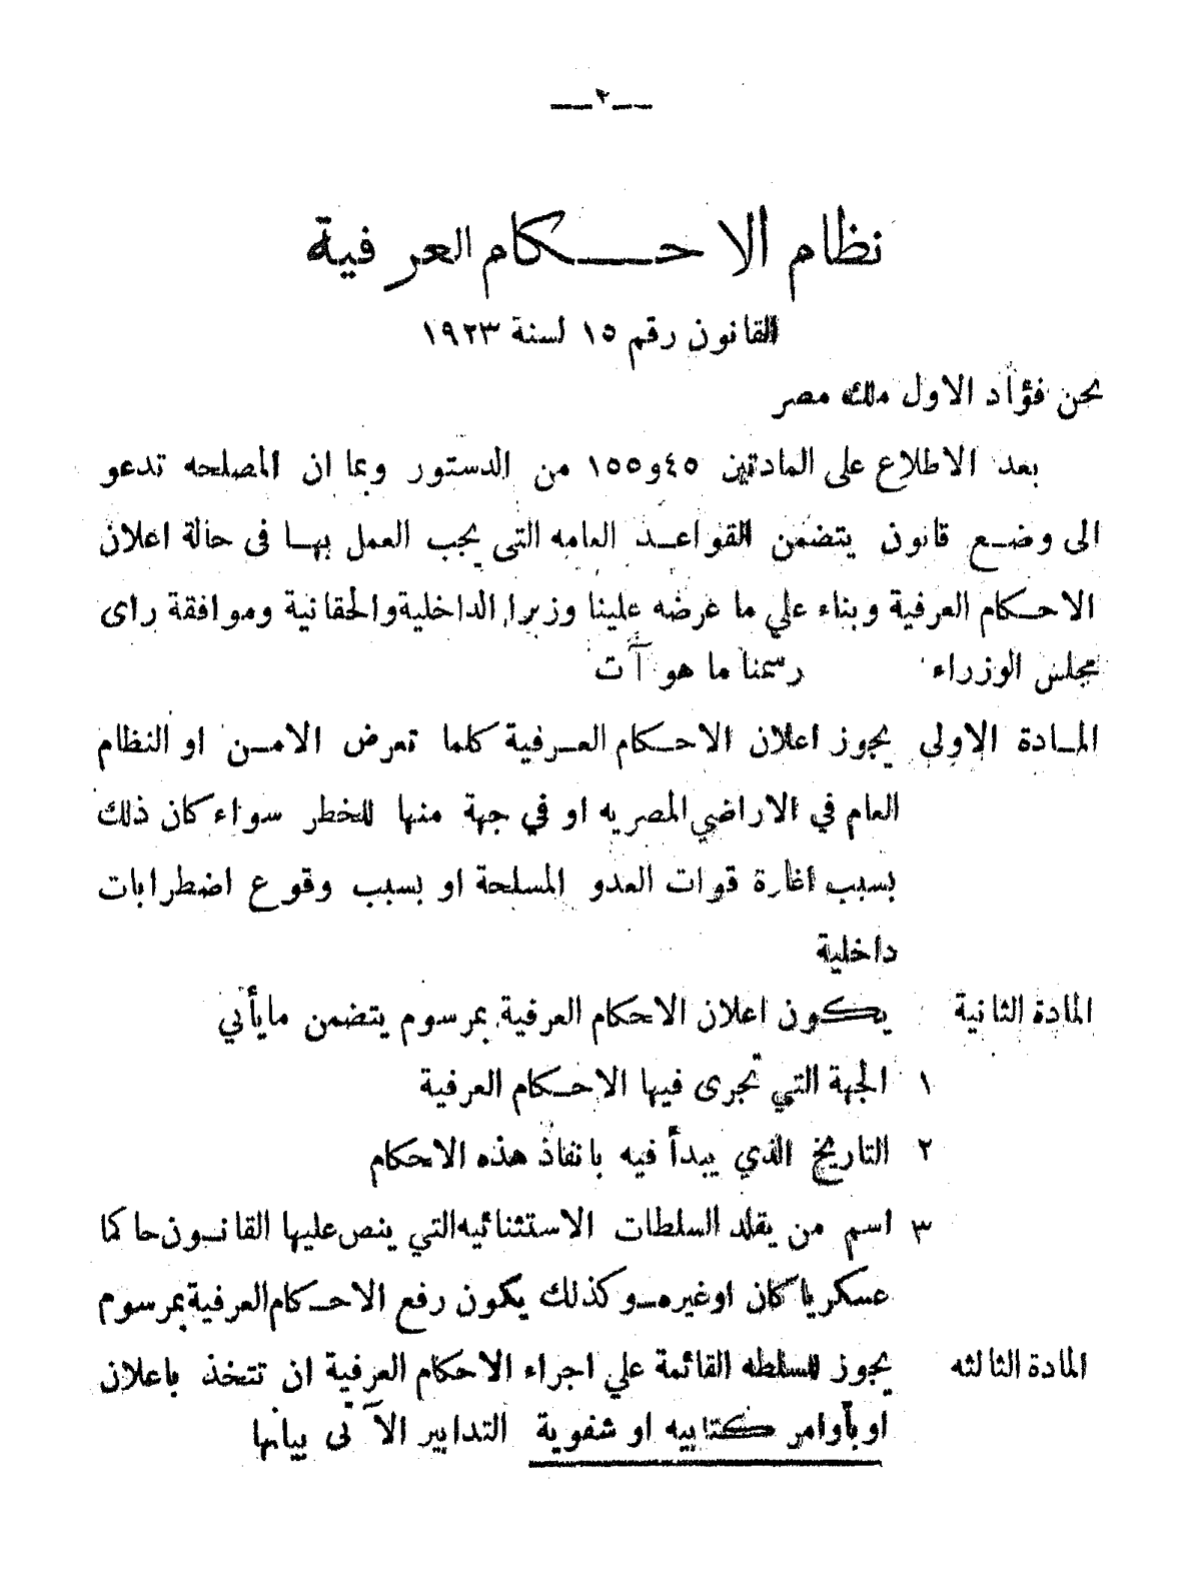 —٢—
نظام الاحكام العرفية
القانون رقم ١٥ لسنة ١٩٢٣
نحن فؤاد الاول ملك مصر
بعد الاطلاع على المادتين ٤٥و١٥٥ من الدستور وبما ان المصلحه تدعو
الى وضع قانون يتضمن القواعد العامه التى يجب العمل بها فى حالة اعلان
الاحكام العرفية وبناء علي ما عرضه علينا وزيرا الداخلية والحقانية وموافقة راى
مجلس الوزراء رسمنا ما هو آت
المادة الاولى يجوز اعلان الاحكام العرفية كلما تعرض الامن او النظام
العام في الاراضي المصريه او في جهة منها للخطر سواء كان ذلك
بسبب اغارة قوات العدو المسلحة او بسبب وقوع اضطرابات
داخلية
المادة الثانية يكون اعلان الاحكام العرفية بمرسوم يتضمن مايأتي
١ الجهة التي تجرى فيها الاحكام العرفية
٢ التاريخ الذي يبدأ فيه بانفاذ هذه الاحكام
٣ اسم من يقلد السلطات الاستثنائيه التي ينص عليها القانون حاكما
عسكريا كان اوغيره—وكذلك يكون رفع الاحكام العرفية بمرسوم
المادة الثالثه يجوز للسلطه القائمة علي اجراء الاحكام العرفية ان تتخذ باعلان
اوبأوامر كتابيه او شفوية التدابير الآتى بيانها